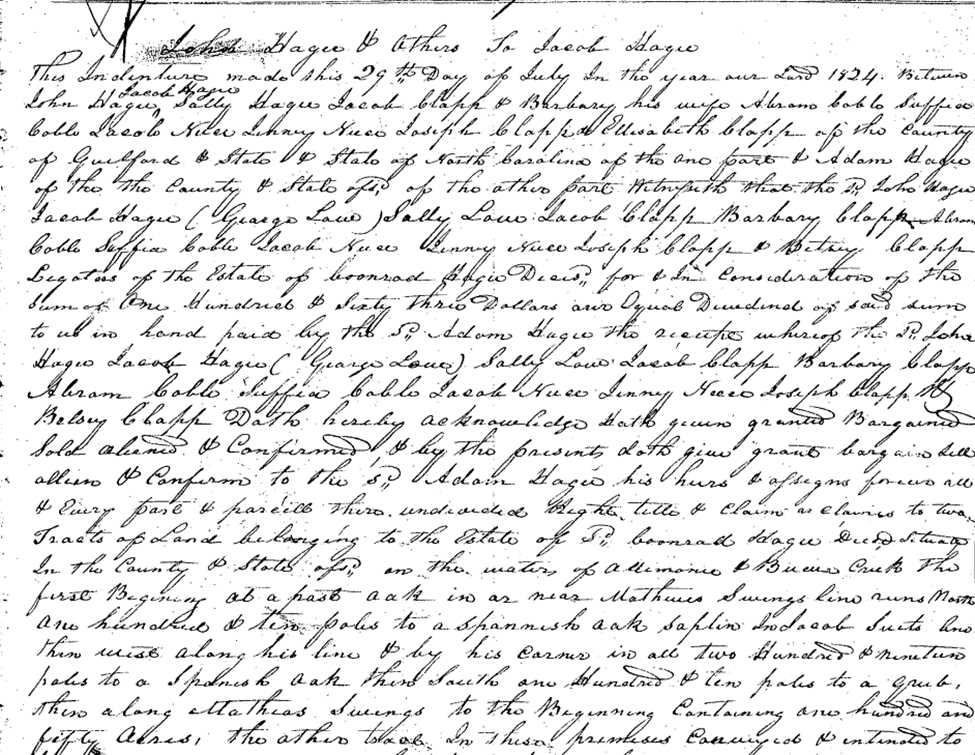 John Hagie & Others To Jacob Hagie
This Indenture made this 29th Day of July In the year our Lord 1824. Between
Jacob Hagie
John Hagie, Sally Hagie Jacob Clapp & Barbary his wife Abram Coble Suffia
Coble Jacob Nuce Linney Nuce Joseph Clapp & Ellisabeth Clapp of the County
of Guilford & State & State of North Carolina of the one part & Adam Hagie
of the the County & State afsd. of the other part Witnesseth that the sd. John Hagie
Jacob Hagie ( George Low ) Sally Low Jacob Clapp Barbary Clapp Abram
Coble Suffia Coble Jacob Nuce Linney Nuce Joseph Clapp & Betsey Clapp
Legatees of the Estate of Coonrad Hagie Decsd. for & In Consideration of the
sum of One Hundred & Sixty three Dollars our Equal Dividend of said sum
to us in hand paid by the sd. Adam Hagie the receipt whereof the sd. John
Hagie Jacob Hagie ( George Low ) Sally Low Jacob Clapp Barbary Clapp
Abram Coble Suffia Coble Jacob Nuce Linney Nuce Joseph Clapp &
Betsey Clapp Doth hereby acknowledge Hath given granted Bargained
Sold aliened & Confirmed, & by the presents doth give grant bargain sell
allien & Confirm to the sd. Adam Hagie his heirs & assigns forever all
& Every part & parcill there undivided Right title & Claim as to two
Tracts of Land belonging to the Estate of sd. Coonrad Hagie Decsd. Situate
In the County & State afsd. on the waters of Allimance & Creek the
first Begining at a post oak in or near Mathius Swings line runs North
one hundred & ten poles to a spannish oak saplin In Jacob line
then west along his line & by his Corner in all two Hundred & nineteen
poles to a Spanish oak then South one Hundred & ten poles to a grub,
then along Mathias Swings to the Beginning Containing one hundred and
fifty Acres, the other In these premises Conveyed & intended to